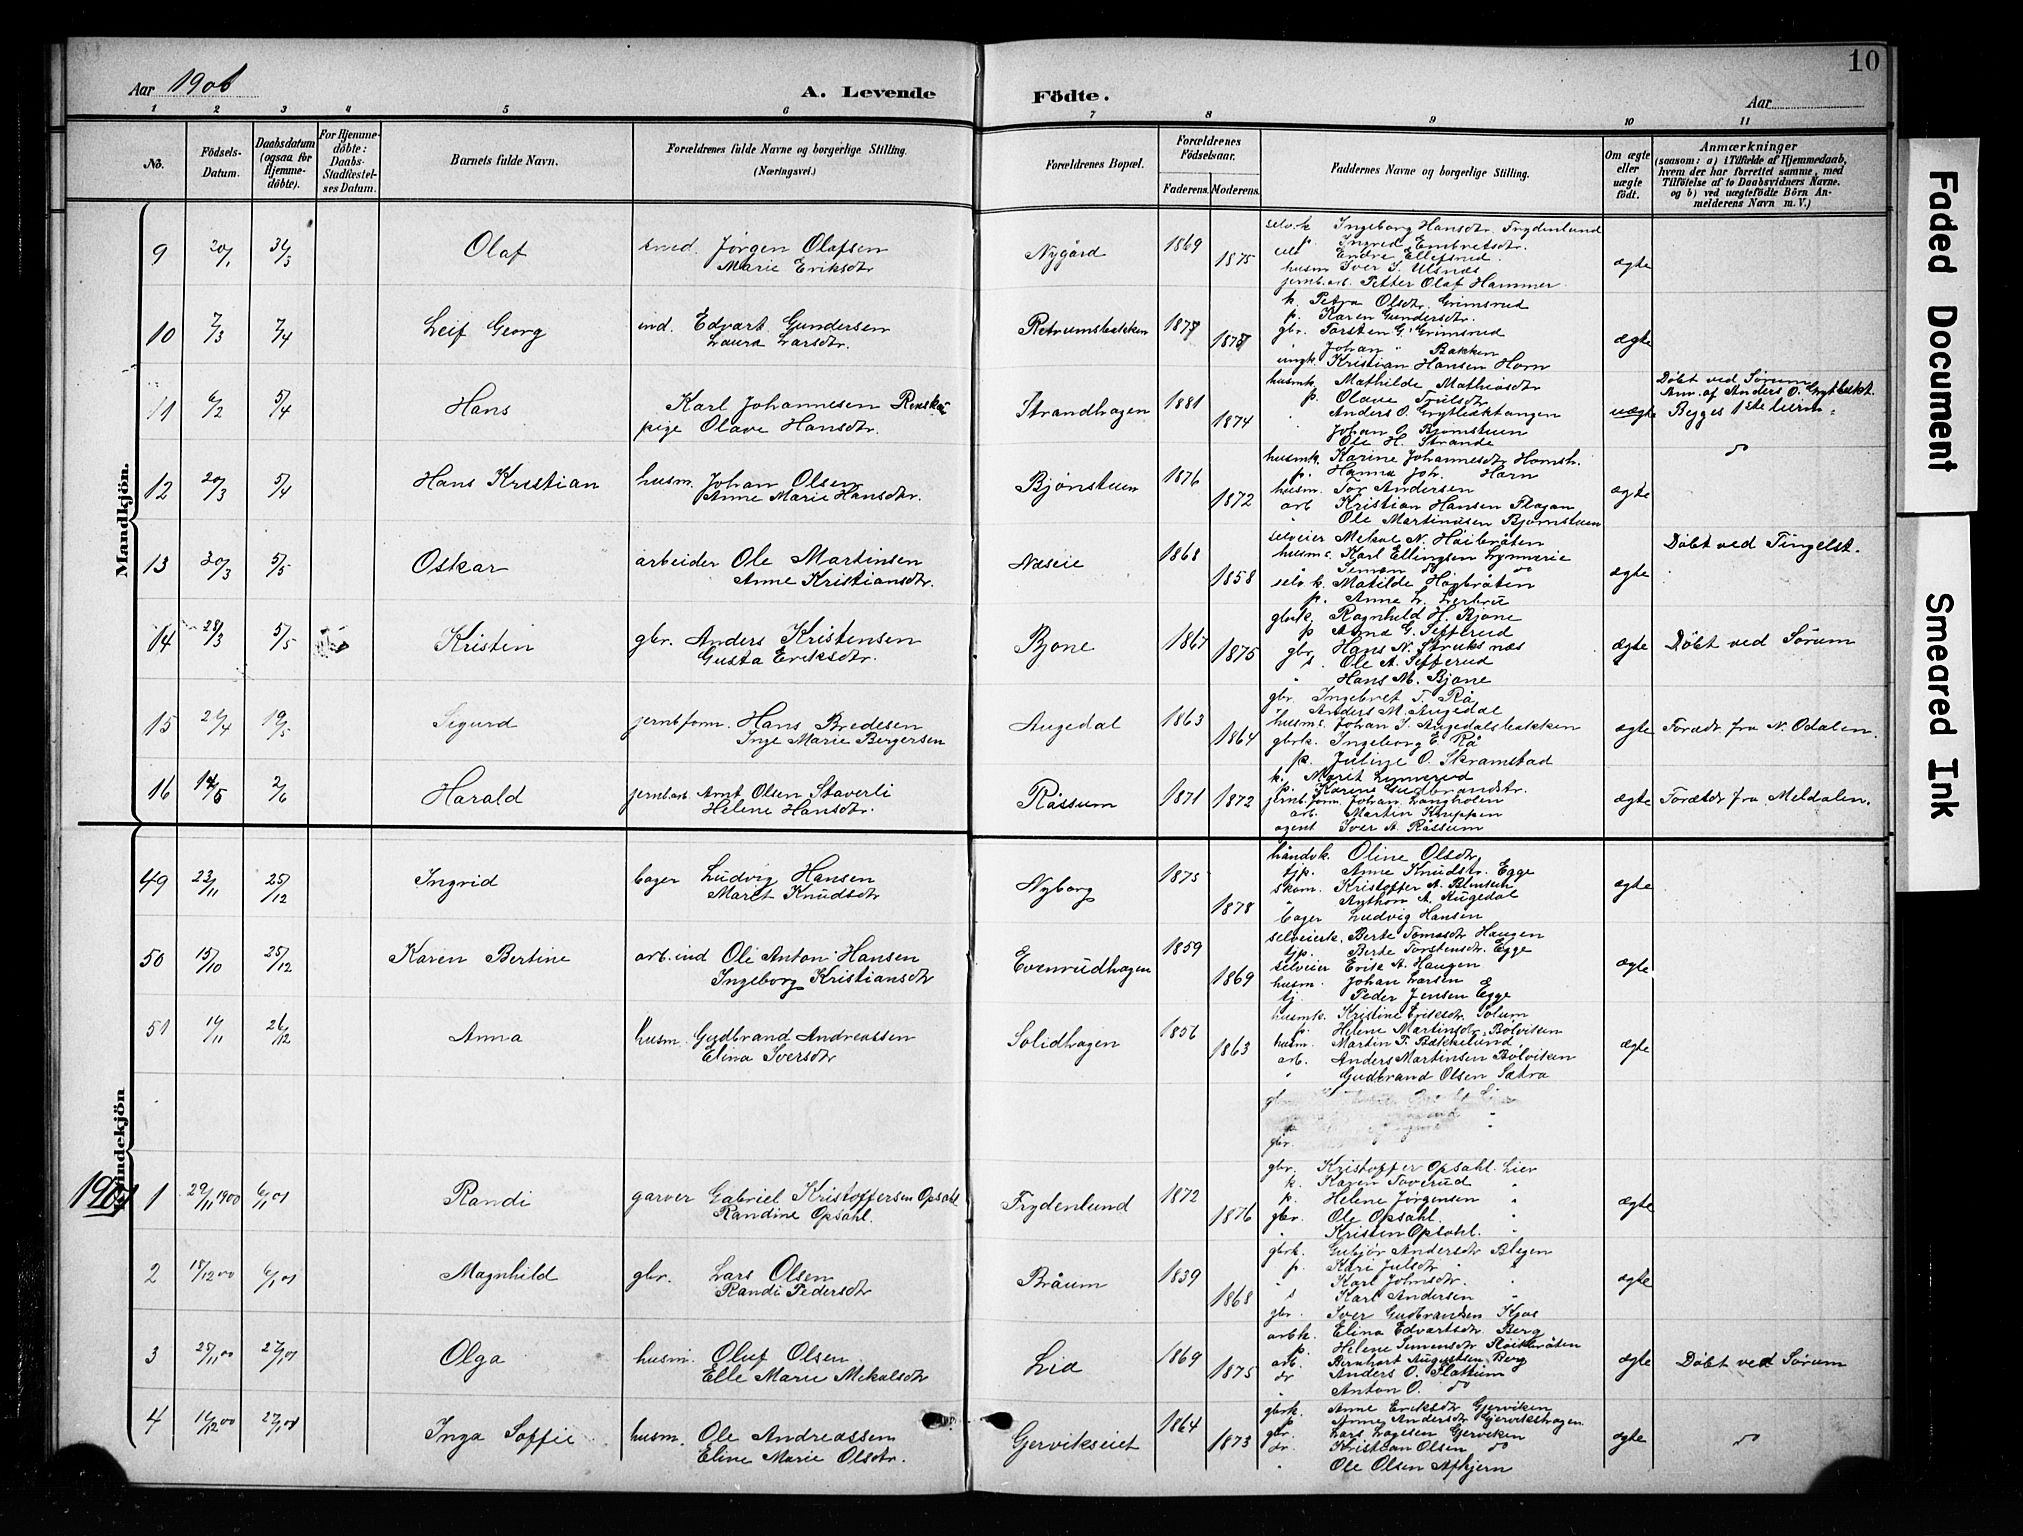 Aar 1906
A. Levende
Födte.
Aar
10
1 2 3 4 5 6 7 8 9 10 11
No.
Födsels-Datum.
Daabsdatum (ogsaa for Hjemme-döbte).
For Hjemme-döbte: Daabs-Stadfæstel-ses Datum.
Barnets fulde Navn.
Forældrenes fulde Navne og borgerlige Stilling. (Næringsvei.)
Forældrenes Bopæl.
Forældrenes Födselsaar.
Faderens. Moderens.
Faddernes Navne og borgerlige Stilling.
Om ægte eller uægte födt.
Anmærkninger
(saasom: a) i Tilfælde af Hjemmedaab, hvem der har forrettet samme, med Tilföielse af to Daabsvidners Navne. og b) ved uægtefödte Börn An-melderens Navn m. V.)
Mandkjön.
9 20/1 Olaf smed. Jørgen Olafsen
Marie Eriksdtr
Nygård 1869 1875
selv.k Ingeborg Hansdtr. Frydenlund
p. Ingrid Embretsdtr.
selv Endre Ellefsrud.
husm Iver I. Ulsnes
jernb.arb. Petter Olaf Hammer
ægte
10 7/3 7/4 Leif Georg ind. Edvart Gundersen
Laura Larsdtr.
1877 1877
k. Petra Olsdtr. Grimsrud
p. Karen Gundersdtr.
gbr. Torsten G. Grimsrud
" Johan " Bakken
ungk. Kristian Hansen Horn
ægte
11 6/2 5/4 Hans Karl Johannesen
pige Olave Hansdtr.
Strandhagen 1881 1874
husmk. Mathilde Mathiasdtr
p. Olave Julsdtr
Anders O.
Johan O. Bjørnstuen
Ole H. Strande
uægte
Døbt ved Sørum
Anm. af Anders O.
Begges 1ste
do
12 20/3 5/4 Hans Kristian husm. Johan Olsen
Anne Marie Hansdtr.
Bjønstuen 1876 1872
husmk. Karine Johannesdtr
p. Hanna Joh. Horn
husm. Tor Andersen
arb Kristian Hansen
" Ole Martinusen Bjørnstuen
ægte
13 20/3 5/5 Oskar arbeider Ole Martinsen
Anne Kristiansdtr.
Næseie 1868 1858
selveier Mekal N. Høibråten
husm. s. Karl Ellingsen
" Simon do do
selv. k. Matilde Høgbråten
p. Anne L.
ægte
Døbt ved Tingelst.
14 28/3 5/5 Kristen gbr. Anders Kristensen
Gusta Eriksdtr.
Bjone 1867 1875
gbrk. Ragnhild H. Bjone
p Anna G. Sefferud
gbr. Hans N. Struksnæs
s. Ole A. Sefferud
" Hans M. Bjone
ægte
Døbt ved Sørum
15 19/5 Sigurd jernb.form. Hans Bredesen
Inge Marie Bergersen
Augedal 1863 1864
gbr. Ingebret T. Rå
" Anders M. Augedal
husm s. Johan I. Augedalsbakken
gbrk. Ingeborg E. Rå
p. Juline O. Skramstad
ægte
Forældr fra N. Odalen.
16 14/5 2/6 Harald jernb.arb. Arnt Olsen Staverli
Helene Hansdtr.
Råssum 1871 1872
k. Marit Lynnerud
p. Karine Gudbrandsdtr.
jernb. form. Johan Langholen
arb. Martin Knippen
agent Iver A. Råssum
ægte
Forældr fra Meldalen.
Kvindekjön
49 23/11 25/12 Ingrid bager Ludvig Hansen
Marit Knudsdtr
Nyborg 1875 1878
håndvk. Oline Olsdtr.
tjp. Anne Knudsdtr. Egge
skom. Kristoffer A.
" Anthon A. Augedal
bager Ludvig Hansen
ægte
50 15/10 25/12 Karen Bertine arb. ind Ole Anton Hansen
Ingeborg Kristiansdtr
Evenrudhagen 1859 1869
selveierk. Berte Tomasdtr Haugen
tjp. Berte Torstensdtr. Egge
selveier Erik A. Haugen
husm. Johan Larsen
tj. Peder Jensen Egge
ægte
51 14/11 26/12 Anna husm. Gudbrand Andreassen
Elina Iversdtr
Solidhagen 1856 1863
husmk. Kristine Eriksdtr. Solum
p. Helene Martinsdtr. Bølviken
husm. Martin T. Bækkelund
arb. Anders Martinsen Bølviken
" Gudbrand Olsen Sætra
ægte
1901
1 29/11 1900 6/1 01 Randi garver Gabriel Kristoffersen Opsahl
Randine Opsahl.
Frydenlund 1872 1876
gbr. Kristoffer Opsahl. Lier
k. Karen Toverud "
p. Helene Jørgensen "
gbr. Ole Opsahl. "
Kristen Opsahl. "
ægte
2 15/12 00 6/1 01 Magnhild gbr. Lars Olsen
Randi Pedersdtr
Bråum 1839 1868
gbrk. Gubjør Andersdtr Blegen
p. Kari Julsdtr "
" Kari Johnsdtr. "
s Karl Andersen "
gbr. Iver Gudbrandsen Kjos
ægte
3 25/11 00 27/1 01 Olga husm. Oluf Olsen
Elle Marie Mekalsdtr
Lia 1869 1875
arbk. Elina Edvartsdtr Berg
p. Helene Simensdtr
arb. Bernhart Augustsen Berg
dr Anders O. Flattum
" Anton O. do
ægte
Døbt ved Sørum
4 16/12 00 27/1 01 Inga Soffie husm. Ole Andreassen
Eline Marie Olsdtr.
Gervikseiet 1864 1873
gbrk. Anne Eriksdtr Gjerviken
p Anne Andersdtr Gjervikshagen
gbr. Lars Lagesen Gerviken
dr. Kristian Olsen do
" Ole Olsen
ægte
do
Faded Document
Smeared Ink